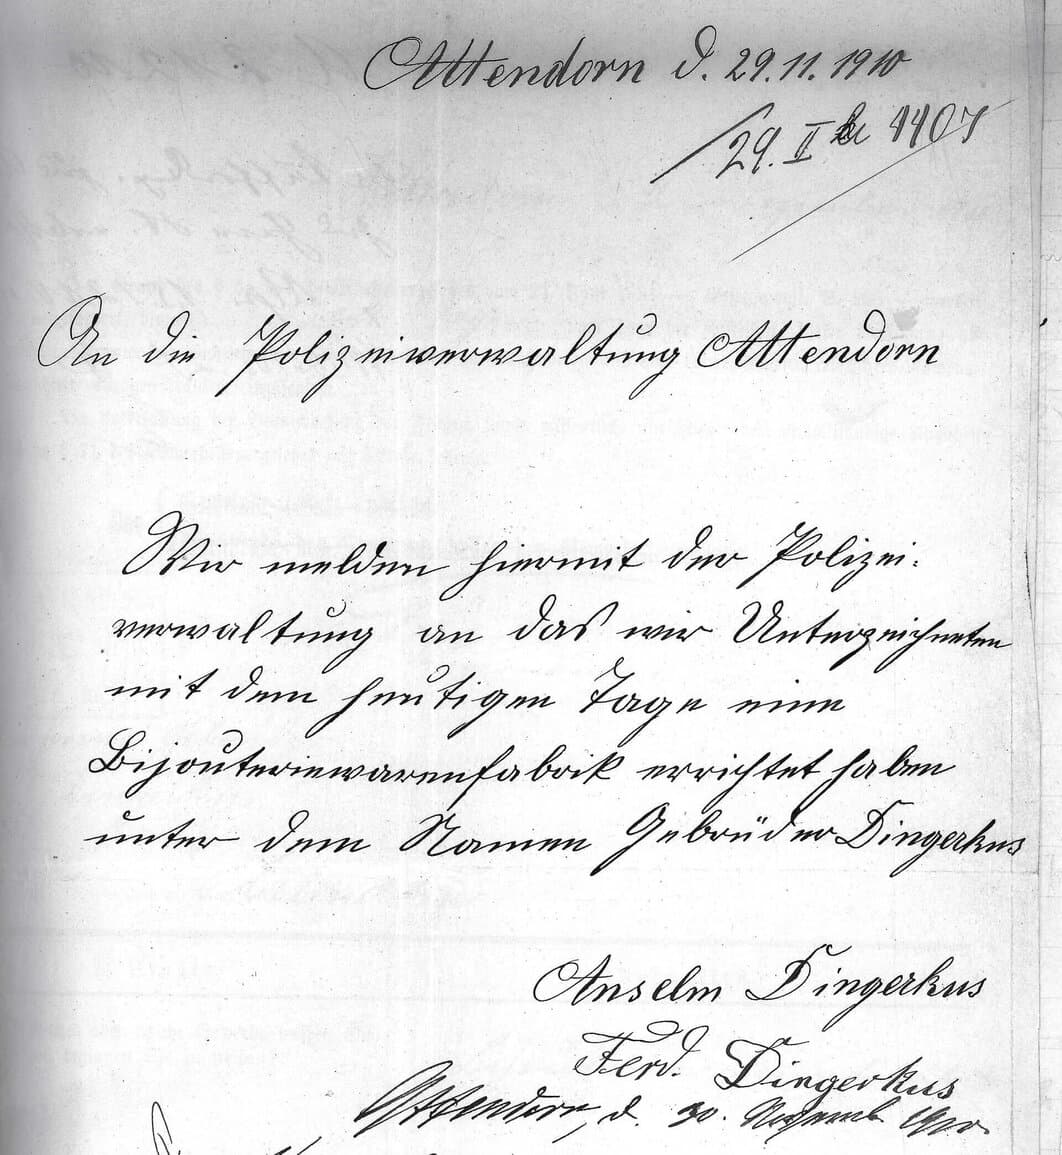 Attendorn d. 29.11.1910
29. II 4407
An die Polizeiverwaltung Attendorn
Wir melden hiermit der Polizei-
verwaltung an das wir Unterzeichneten
mit dem heutigen Tage eine
Bijouteriewarenfabrik errichtet haben
unter dem Namen Gebrüder Dingerkus
Anselm Dingerkus
Ferd. Dingerkus
Attendorn, d. 30. Novemb. 1910.